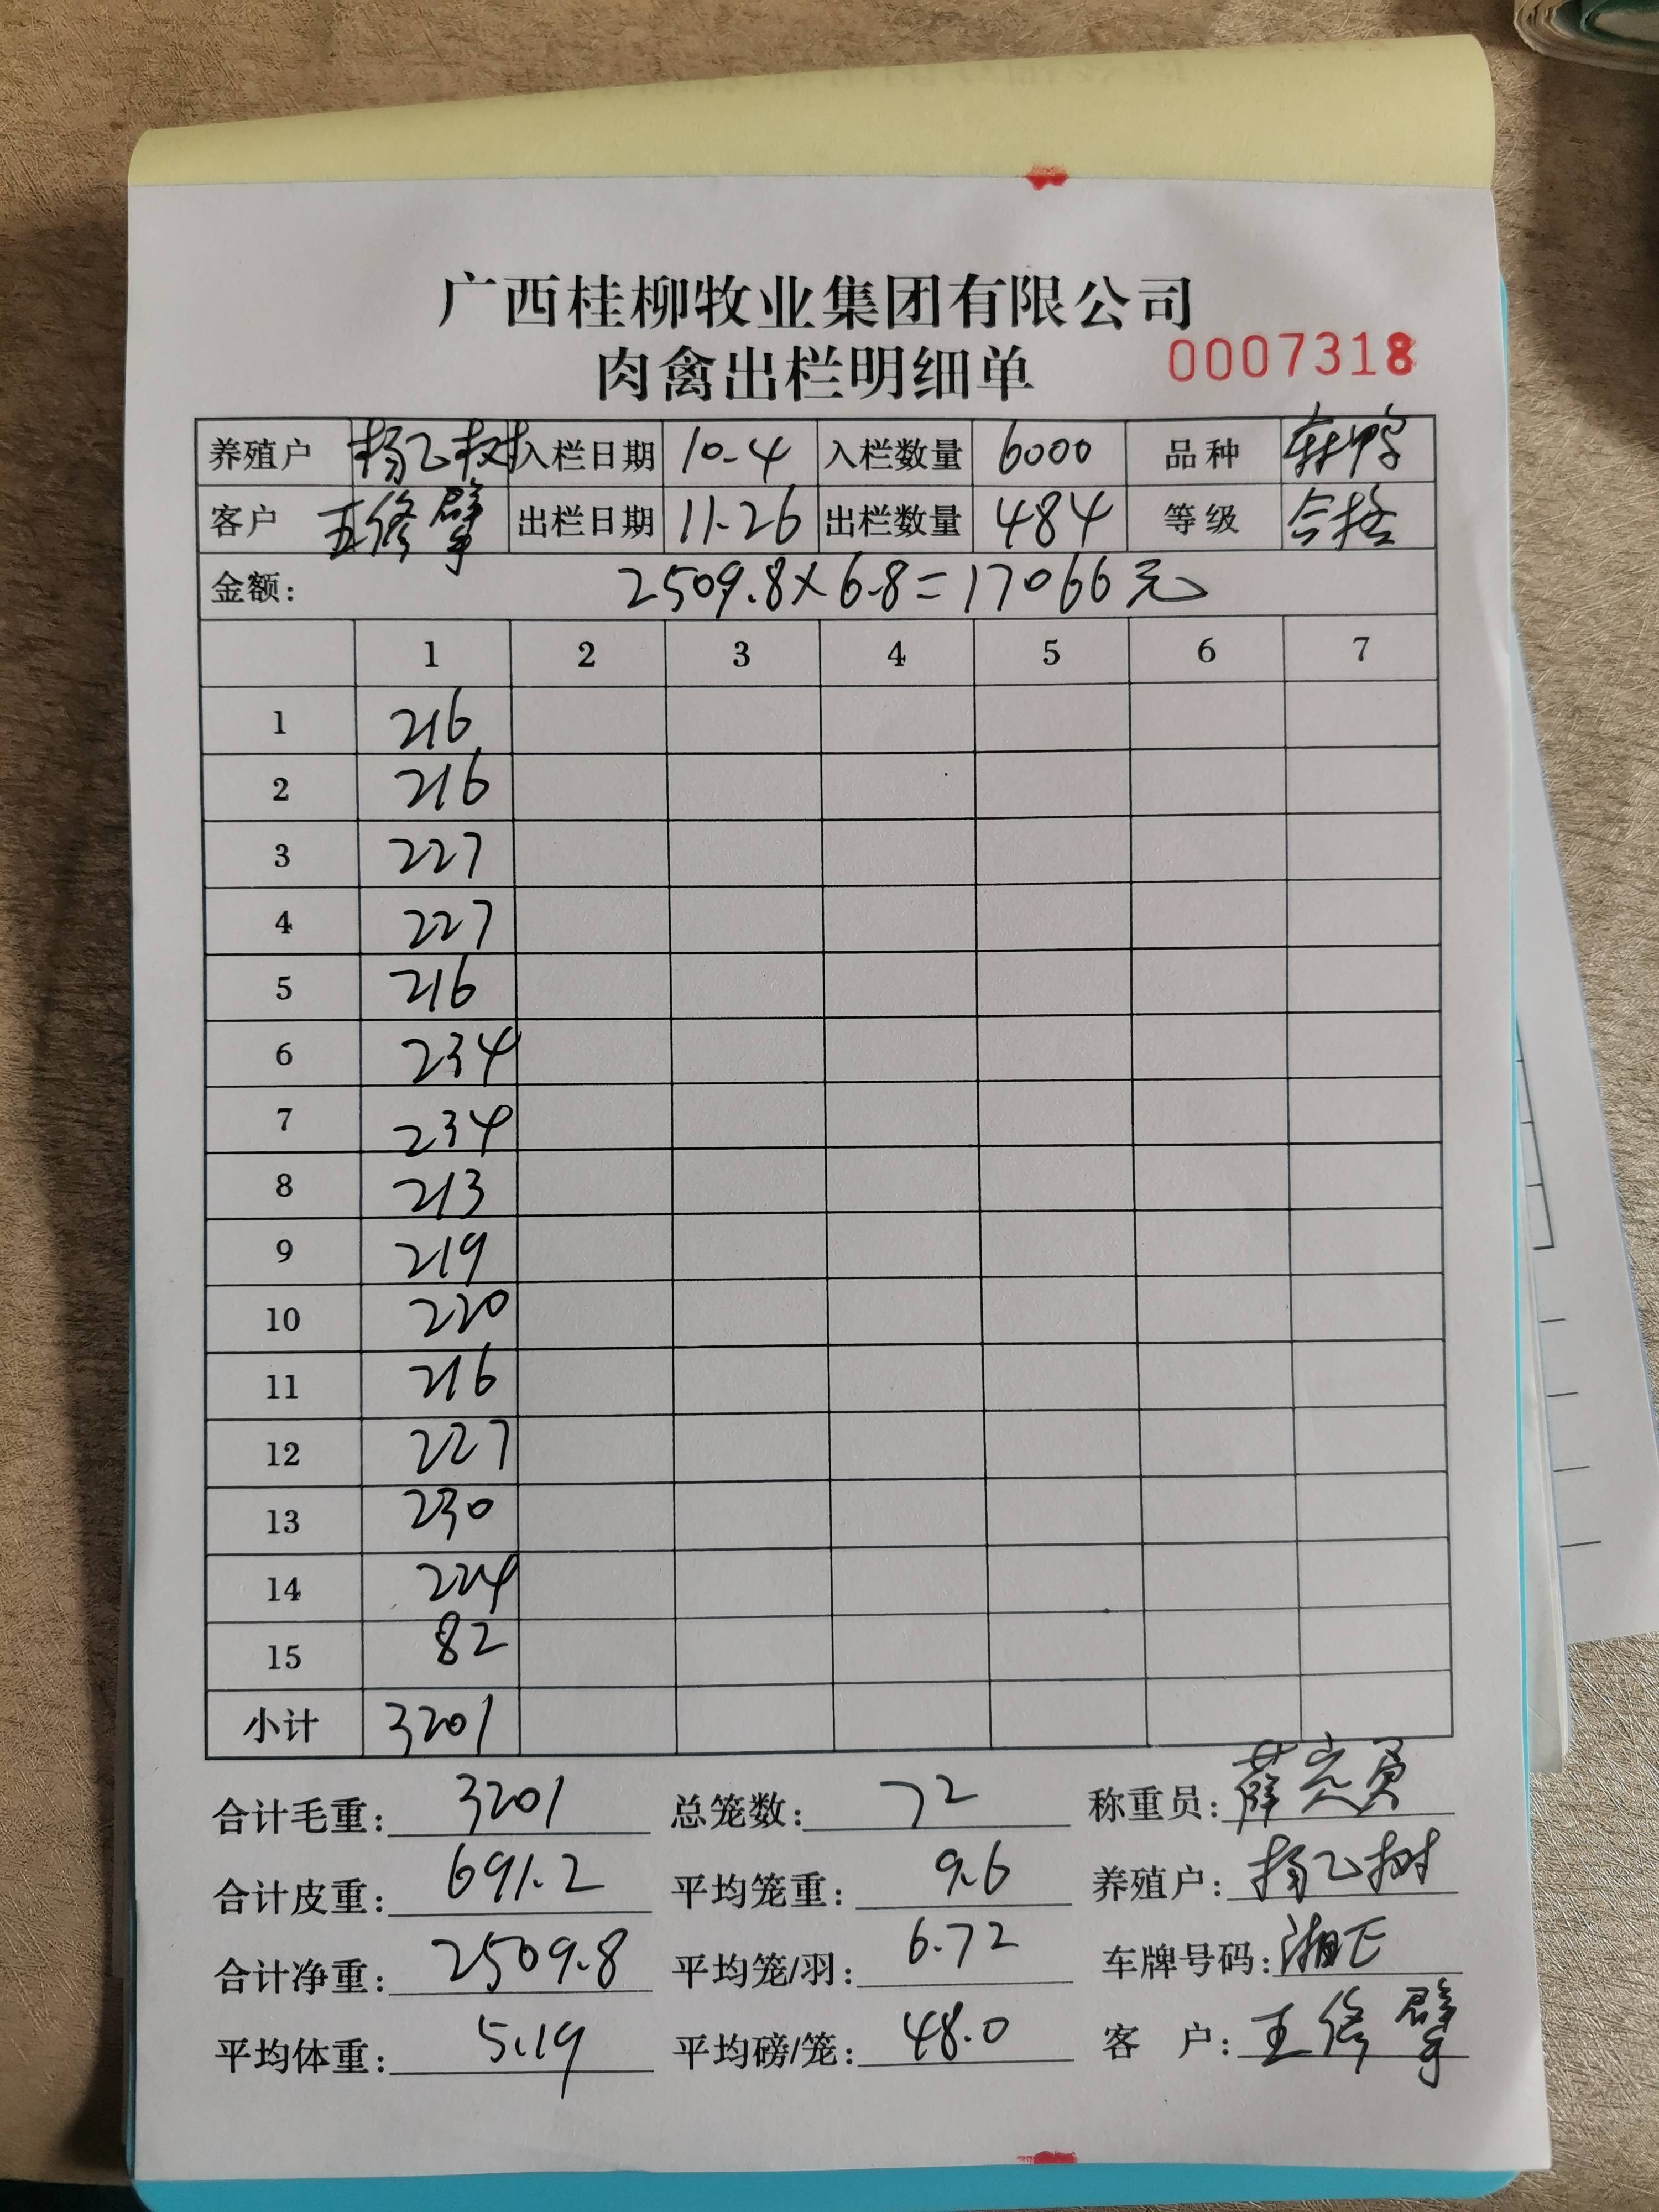 广西桂柳牧业集团有限公司
肉禽出栏明细单 0007318
养殖户 杨乙树 入栏日期 10-4 入栏数量 6000 品种
客户 王修擘 出栏日期 11.26 出栏数量 484 等级 合格
金额: 2509.8×6.8=17066元
1 2 3 4 5 6 7
1 216
2 216
3 227
4 227
5 216
6 234
7 234
8 213
9 219
10 220
11 216
12 227
13 230
14 224
15 82
小计 3201
合计毛重: 3201 总笼数: 72 称重员: 薛克勇
合计皮重: 691.2 平均笼重: 9.6 养殖户: 杨乙树
合计净重: 2509.8 平均笼/羽: 6.72 车牌号码: 湘E
平均体重: 5.19 平均磅/笼: 48.0 客户: 王修擘